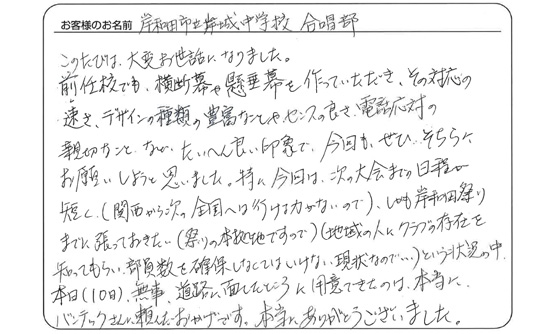 お客様のお名前 岸和田市立岸城中学校 合唱部
このたびは、大変お世話になりました。
前任校でも、横断幕や懸垂幕を作っていただき、その対応の
速さ、デザインの種類の豊富なことや、センスの良さ、電話応対の
親切なこと、なか、たいへん良い印象で、今回も、ぜひ、そちらに
お願いしようと思いました。特に今回は、次の大会までの日程が
短く、(関西から次の全国へは行ける力がないので)、しかも岸和田祭り
までに張っておきたい(祭りの本拠地ですので)(地域の人にクラブの存在を
知ってもらい、部員数を確保しなくてはいけない現状なので…)という状況の中、
本日(10日)、無事、道路に面したところに用意できたのは、本当に
バンテックさんに頼んだおかげです。本当にありがとうございました。